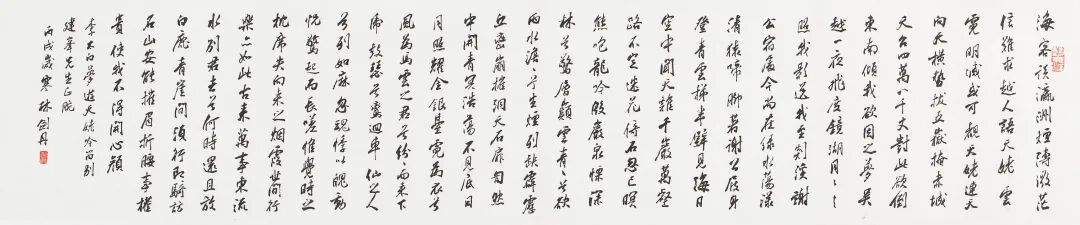 海客談瀛洲煙濤微茫
信難求越人語天姥雲
霓明滅或可覩天姥連天
向天橫勢拔五嶽掩赤城
天台四萬八千丈對此欲倒
東南傾我欲因之夢吳
越一夜飛度鏡湖月々
照我影送我至剡溪謝
公宿處今尚在綠水蕩漾
清猿啼腳著謝公屐身
登青雲梯半壁見海日
空中聞天雞千巖萬壑
路不定迷花倚石忽已暝
熊咆龍吟殷巖泉慄深
林兮驚層巔雲青々兮欲
雨水澹々兮生煙列缺霹靂
丘巒崩摧洞天石扉訇然
中開青冥浩蕩不見底日
月照耀金銀臺霓為衣兮
風為馬雲之君兮紛而來下
虎鼓瑟兮鸞迴車仙之人
兮列如麻忽魂悸以魄動
怳驚起而長嗟惟覺時之
枕席失向來之煙霞世間行
樂亦如此古來萬事東流
水別君去兮何時還且放
白鹿青崖間須行即騎訪
名山安能摧眉折腰事權
貴使我不得開心顏
李太白夢遊天姥吟留別
建峯先生正腕
丙戌歲寒林劍丹